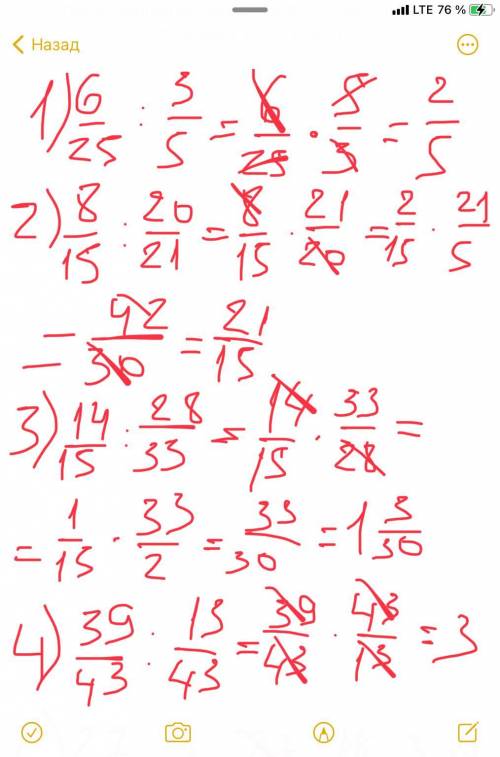 LTE 76 %
Назад
1) 6/25 : 3/5 = 6/25 · 5/3 = 2/5
2) 8/15 : 20/21 = 8/15 · 21/20 = 2/15 · 21/5
= 42/30 = 21/15
3) 14/15 : 28/33 = 14/15 · 33/28 =
= 1/15 · 33/2 = 33/30 = 1 3/30
4) 39/43 : 13/43 = 39/43 · 43/13 = 3